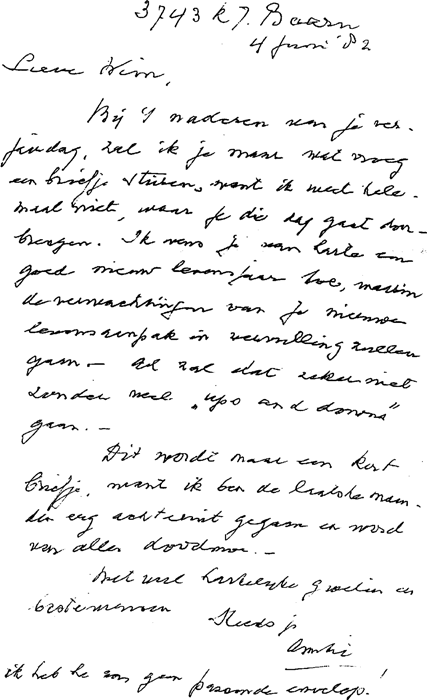 3743 KJ. Baarn
4 Juni '82
Lieve Wim,
Bij 't naderen van je ver-
jaardag, zal ik je maar wat vroeg
een briefje sturen, want ik weet hele-
maal niet, waar je die dag gaat door-
brengen. Ik wens je van harte een
goed nieuw levensjaar toe, waarin
de verwachtingen van je nieuwe
levensaanpak in vervulling zullen
gaan. – Al zal dat zeker niet
zonder veel „ups and downs"
gaan. –
Dit wordt maar een kort
briefje, want ik ben de laatste maan-
den erg achteruit gegaan en word
van alles doodmoe. –
Met veel hartelijke groeten en
beste wensen Steeds je
ik heb geen passende envelop!